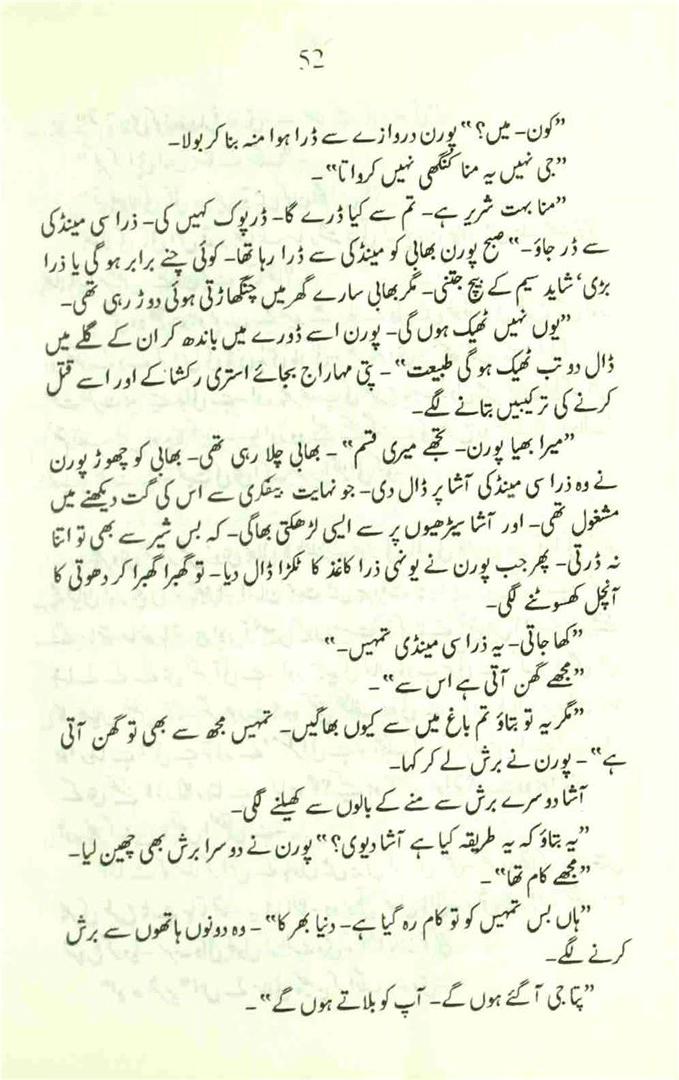 52
”کون۔ میں؟“ پورن دروازے سے ڈرا ہوا منہ بنا کر بولا۔
”جی نہیں یہ منا کنگھی نہیں کرواتا“۔
”منا بہت شریر ہے۔ تم سے کیا ڈرے گا۔ ڈرپوک کہیں کی۔ ذرا سی مینڈکی
سے ڈر جاؤ۔“ صبح پورن بھابی کو مینڈکی سے ڈرا رہا تھا۔ کوئی چنے برابر ہوگی یا ذرا
بڑی‘ شاید سیم کے بیچ جتنی۔ مگر بھابی سارے گھر میں چنگھاڑتی ہوئی دوڑ رہی تھی۔
”یوں نہیں ٹھیک ہوں گی۔ پورن اسے ڈورے میں باندھ کر ان کے گلے میں
ڈال دو تب ٹھیک ہوگی طبیعت“۔ پتی مہاراج بجائے استری رکشا کے اور اسے قتل
کرنے کی ترکیبیں بتانے لگے۔
”میرا بھیا پورن۔ تجھے میری قسم“۔ بھابی چلا رہی تھی۔ بھابی کو چھوڑ پورن
نے وہ ذرا سی مینڈکی آشا پر ڈال دی۔ جو نہایت بیفکری سے اس کی گت دیکھنے میں
مشغول تھی۔ اور آشا سیڑھیوں پر سے ایسی لڑھکتی بھاگی۔ کہ بس شیر سے بھی تو اتنا
نہ ڈرتی۔ پھر جب پورن نے یونہی ذرا کاغذ کا ٹکڑا ڈال دیا۔ تو گھبرا گھبرا کر دھوتی کا
آنچل کھسوٹنے لگی۔
”کھا جاتی۔ یہ ذرا سی مینڈی تمہیں۔“
”مجھے گھن آتی ہے اس سے“۔
”مگر یہ تو بتاؤ تم باغ میں سے کیوں بھاگیں۔ تمہیں مجھ سے بھی تو گھن آتی
ہے“۔ پورن نے برش لے کر کہا۔
آشا دوسرے برش سے منے کے بالوں سے کھیلنے لگی۔
”یہ بتاؤ کہ یہ طریقہ کیا ہے آشا دیوی؟“ پورن نے دوسرا برش بھی چھین لیا۔
”مجھے کام تھا“۔
”ہاں بس تمہیں کو تو کام رہ گیا ہے۔ دنیا بھر کا“۔ وہ دونوں ہاتھوں سے برش
کرنے لگے۔
”پتا جی آ گئے ہوں گے۔ آپ کو بلاتے ہوں گے“۔